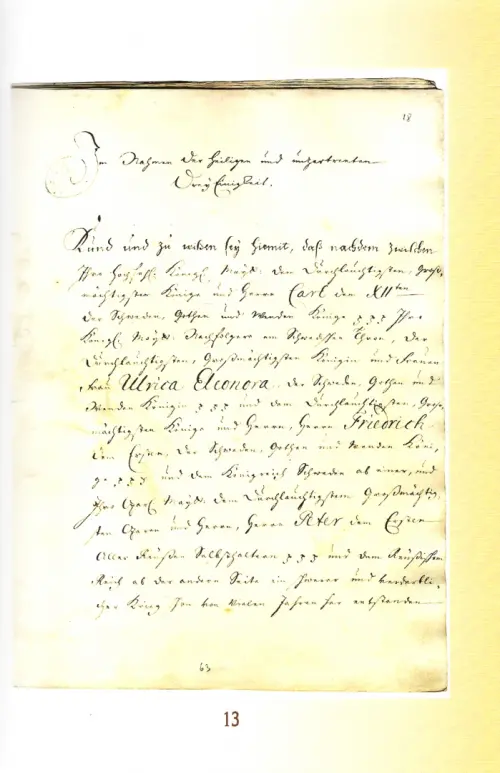 18
Im Nahmen der Heiligen und unzertrenten
Drey Einigkeit.
Kund und zu wißen sey hiemit, daß nachdem zwischen
Ihro Hochsehl. Königl. Mayt. dem Durchlauchtigsten, Groß-
mächtigsten Könige und Herrn Carl den XIIten
der Schweden, Gothen und Wenden Könige Ihro
Königl. Mayt. Nachfolgere am Schwedschen Thron, der
Durchlauchtigsten, Großmächtigsten Königin und Frauen
Frau Ulrica Eleonora der Schweden, Gothen und
Wenden Königin und dem Durchlauchtigsten, Groß-
mächtigsten Könige und Herrn, Herrn Friedrich
dem Ersten, der Schweden, Gothen und Wenden Köni-
ge und dem Königreich Schweden ab einer, und
Ihro Mayt. dem Durchlauchtigstem Großmächtig-
sten und Herrn, Herrn Peter dem Ersten
Aller Reußen Selbsthaltern und dem Reußischen
Reich ab der andern Seite ein schwerer und verderbli-
cher Krieg schon von vielen Jahren her entstanden
63
13